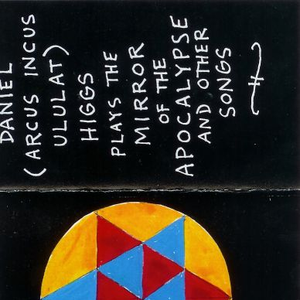 DANIEL
(ARCUS INCUS
ULULAT)
HIGGS
PLAYS THE
MIRROR
OF THE
APOCALYPSE
AND OTHER
SONGS